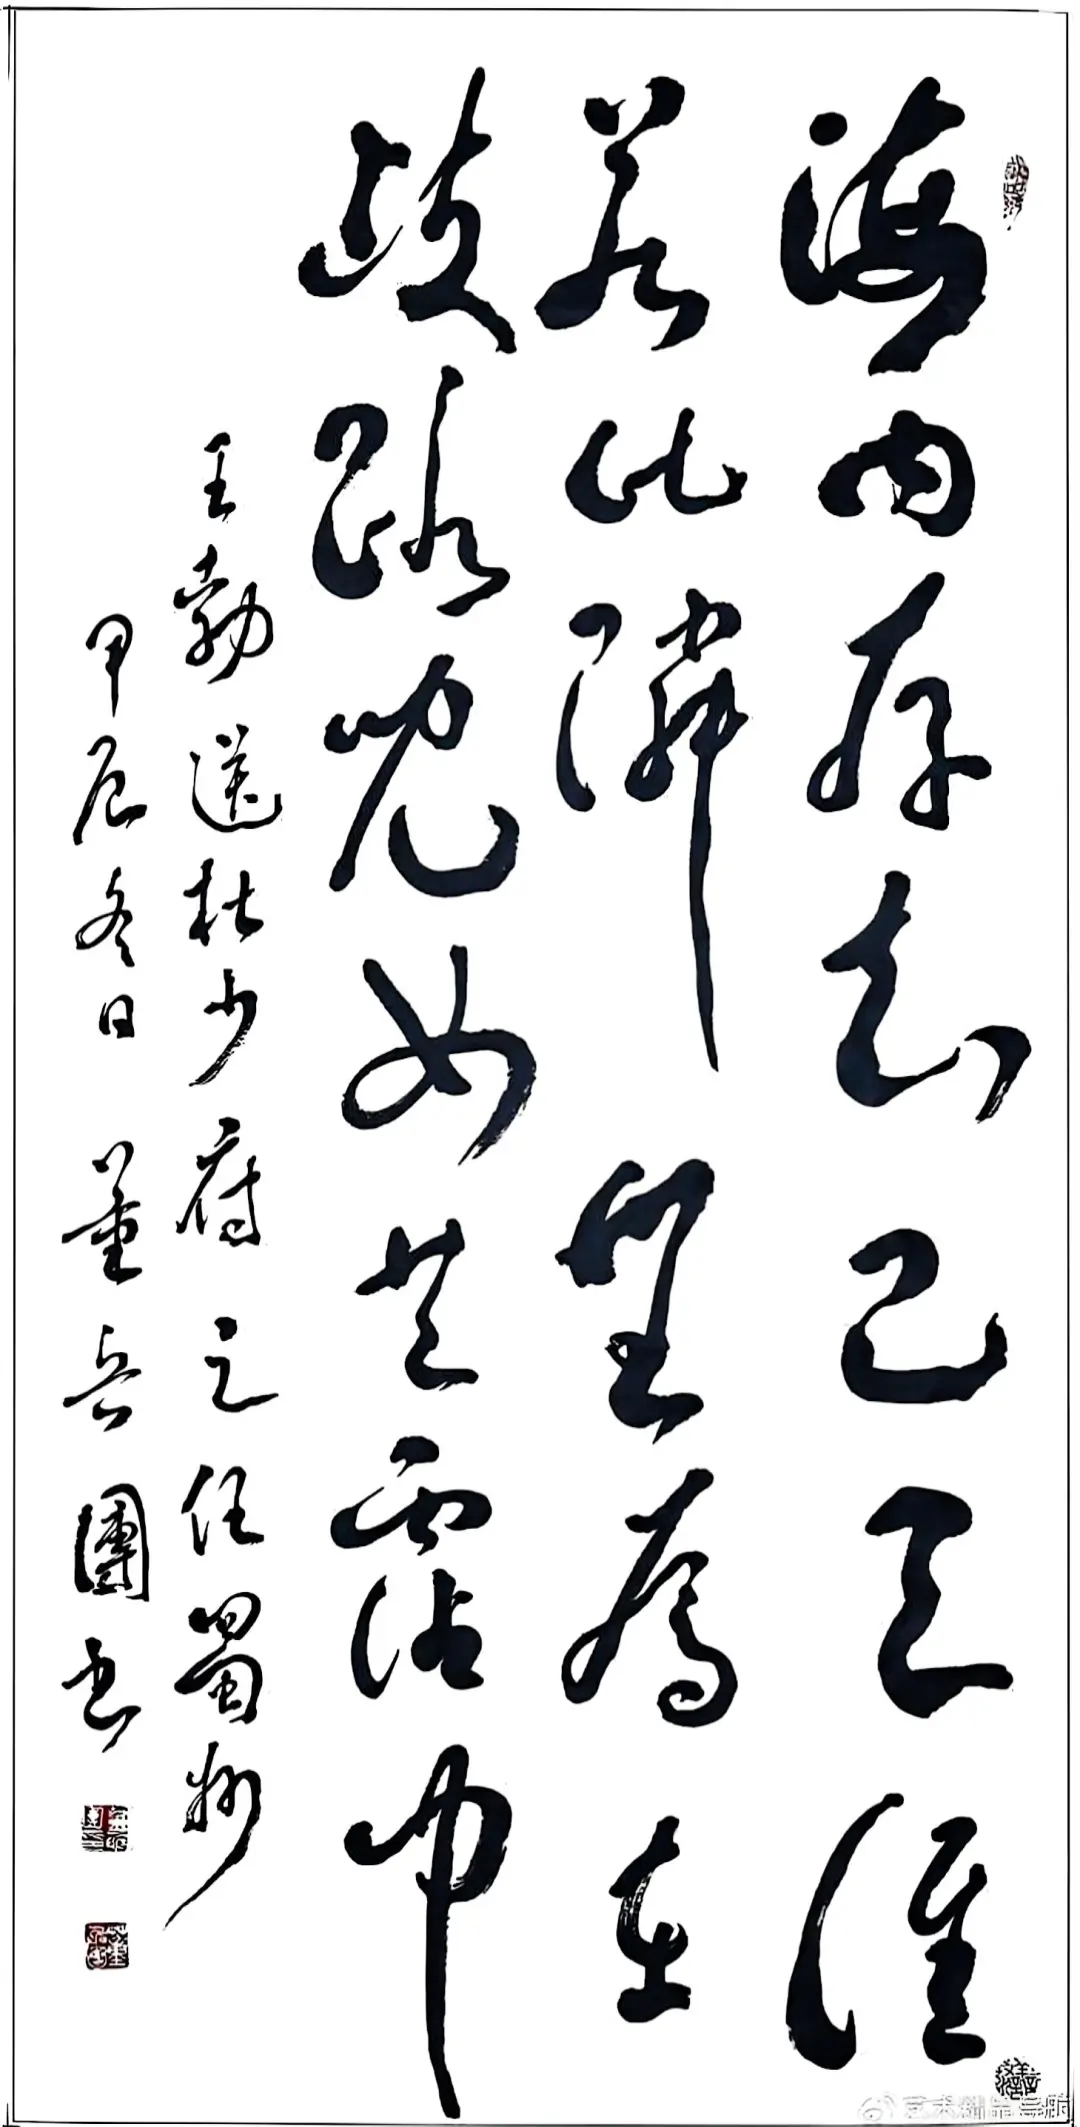 海内存知己天涯
若比隣無為在
歧路兒女共霑巾
王勃送杜少府之任蜀州
甲辰冬日 董兵團书